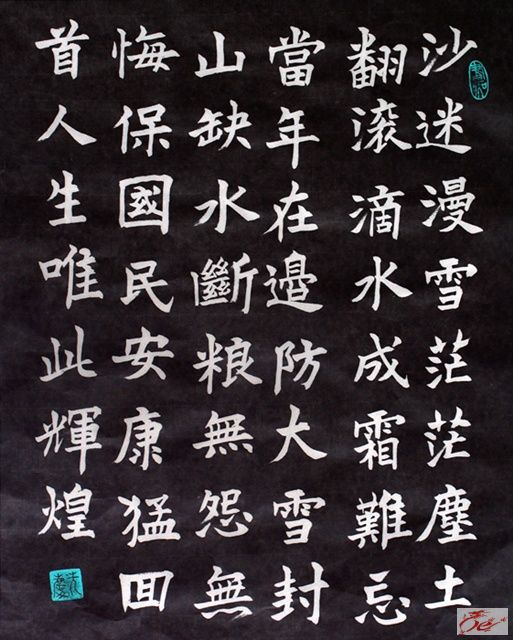 沙迷漫雪茫茫塵土
翻滚滴水成霜難忘
當年在邊防大雪封
山缺水斷粮無怨無
悔保國民安康猛回
首人生唯此輝煌